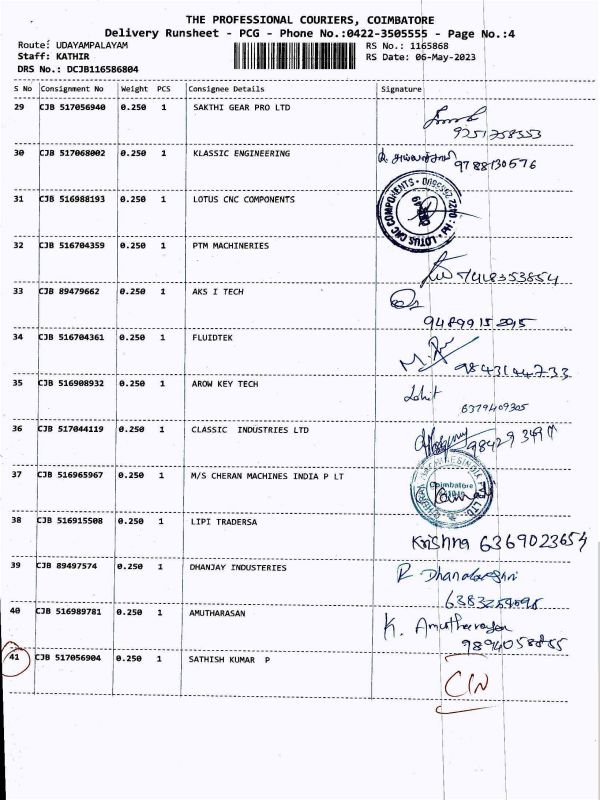 THE PROFESSIONAL COURIERS, COIMBATORE
Delivery Runsheet - PCG - Phone No.:0422-3505555 - Page No.:4
Route: UDAYAMPALAYAM RS No.: 1165868
Staff: KATHIR RS Date: 06-May-2023
DRS No.: DCJB116586804
S No Consignment No Weight PCS Consignee Details Signature
29 CJB 517056940 0.250 1 SAKTHI GEAR PRO LTD
9251758353
30 CJB 517068002 0.250 1 KLASSIC ENGINEERING
9788130576
31 CJB 516988193 0.250 1 LOTUS CNC COMPONENTS
LOTUS CNC COMPONENTS PH: 0422
32 CJB 516704359 0.250 1 PTM MACHINERIES
7418353854
33 CJB 89479662 0.250 1 AKS I TECH
9489915295
34 CJB 516704361 0.250 1 FLUIDTEK
9843144733
35 CJB 516908932 0.250 1 AROW KEY TECH
Lohit
6379409305
36 CJB 517044119 0.250 1 CLASSIC INDUSTRIES LTD
37 CJB 516965967 0.250 1 M/S CHERAN MACHINES INDIA P LT
Coimbatore
38 CJB 516915508 0.250 1 LIPI TRADERSA
Krishna 6369023654
39 CJB 89497574 0.250 1 DHANJAY INDUSTERIES
40 CJB 516989781 0.250 1 AMUTHARASAN
K.
9894058855
41 CJB 517056904 0.250 1 SATHISH KUMAR P
CIN